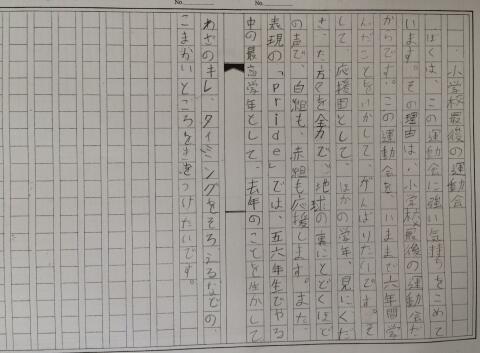 No.
No.
小学校最後の運動会
ぼくは、この運動会に強い気持ちをこめて
います。その理由は、小学校最後の運動会だ
からです。この運動会を、いままで六年間学
んだことをいかして、がんばりたいです。そ
して、応援団として、ほかの学年、見にくだ
さった方々を全力で、地球の裏にとどくほど
の声で、白組も、赤組も応援します。また、
表現の「Pride」では、五六年生でやる
中の最高学年として、去年のことを生かして
わざのキレ、タイミングをそろえるなどの、
こまかいところを気をつけたいです。